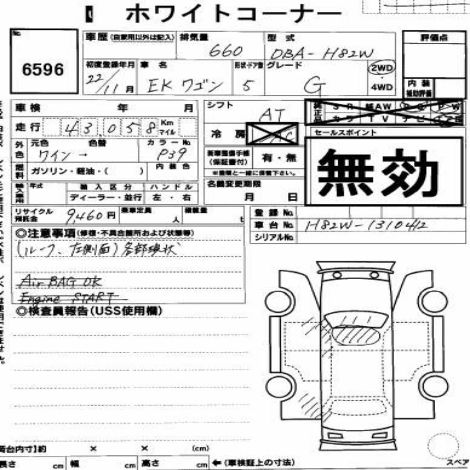 ホワイトコーナー
No.
6596
車歴 (自家用以外は記入)
排気量
660
型式
DBA-H82W
評価点
初度登録年月
22/11月
車名
EKワゴン
形状・ドア数
5
グレード
G
2WD
4WD
内装
補助評価
車検 年 月
シフト
AT
走行 43058 Km マイル
冷房
セールスポイント
無効
外色
元色
ワイン→
色替
カラーNo.
P39
新車整備手帳
(保証書付)
有・無
※内容に一緒に保管して下さい。
燃料
ガソリン・軽油・( )
名義変更期限
月 日
輸入車
年式
輸入区分
ディーラー・並行
ハンドル
左・右
リサイクル預託金
9,460円
乗車定員
人
積載量
t
登録No.
車台No.
H82W-1310412
シリアルNo.
◎注意事項 (修復・不具合箇所および状態等)
(ルーフ、左側面) 各部現状
AirBAG OK
Engine START
◎検査員報告 (USS使用欄)
荷台内寸) × × (cm)
長さ cm 幅 cm 高さ cm ←(車検証上の寸法)
スペア